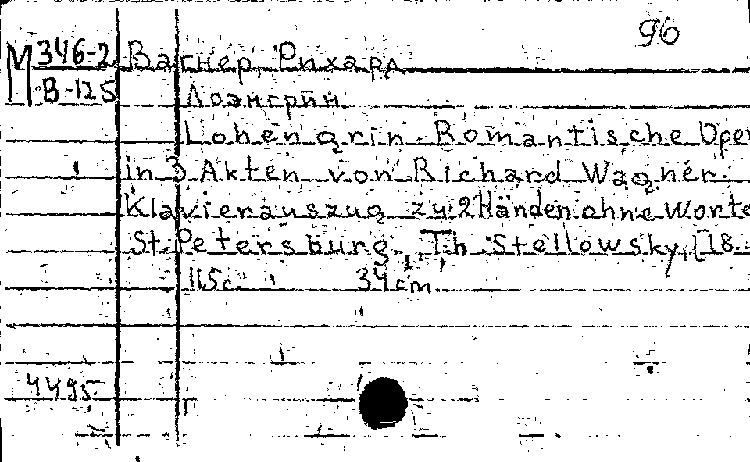 96
М 346-2 Вагнер, Рихард
В-125 Лоэнгрин.
Lohengrin. Romantische Oper
in 3 Akten von Richard Wagner.
Klavierauszug zu 2 Händen ohne Worte
St. Petersburg, Th. Stellowsky, [18
115 с. 34 cm.
4495